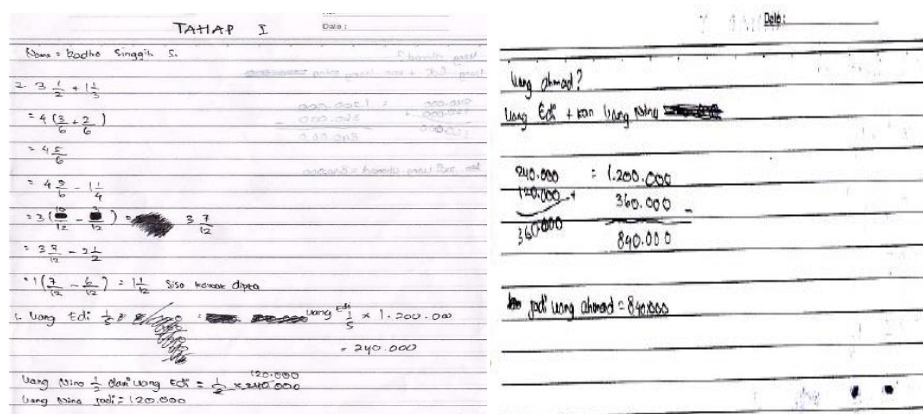 TAHAP I
Date:
Nama = Ridho Singgih S.
2. 3 1/2 + 1 1/3
= 4 (3/6 + 2/6)
= 4 5/6
= 4 5/6 - 1 1/4
= 3 (10/12 - 3/12) = 3 7/12
= 3 7/12 - 2 1/2
= 1 (7/12 - 6/12) = 1 1/12 sisa dipta
1. Uang Edi 1/5 = uang Edi 1/5 x 1.200.000
= 240.000
Uang Nina 1/2 dari uang Edi = 1/2 x 240.000 120.000
Uang Nina jadi = 120.000
Date:
Uang ahmad?
Uang Edi + kan Uang Nina
240.000 = 1.200.000
120.000 + 360.000 -
360.000 840.000
jadi uang ahmad = 840.000